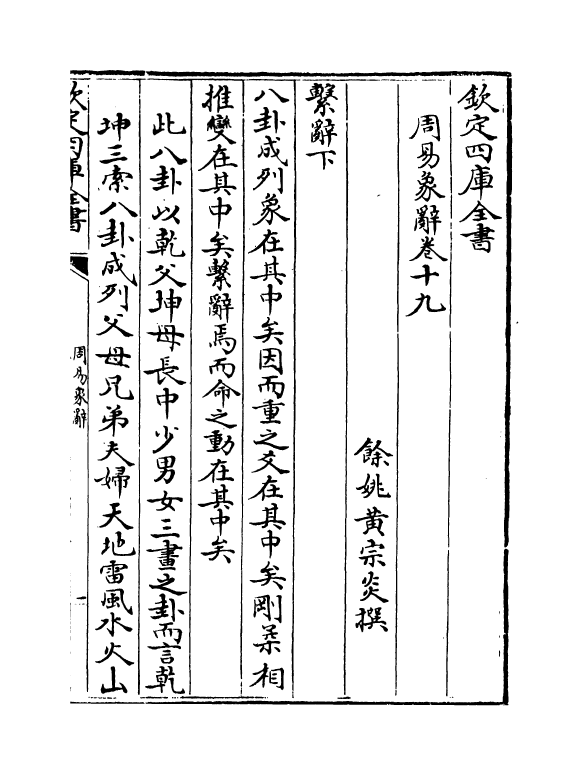 欽定四庫全書
周易象辭卷十九
餘姚黄宗炎撰
繫辭下
八卦成列象在其中矣因而重之爻在其中矣剛柔相
推變在其中矣繫辭焉而命之動在其中矣
此八卦以乾父坤母長中少男女三畫之卦而言乾
坤三索八卦成列父母兄弟夫婦天地雷風水火山
欽定四庫全書
周易象辭
一